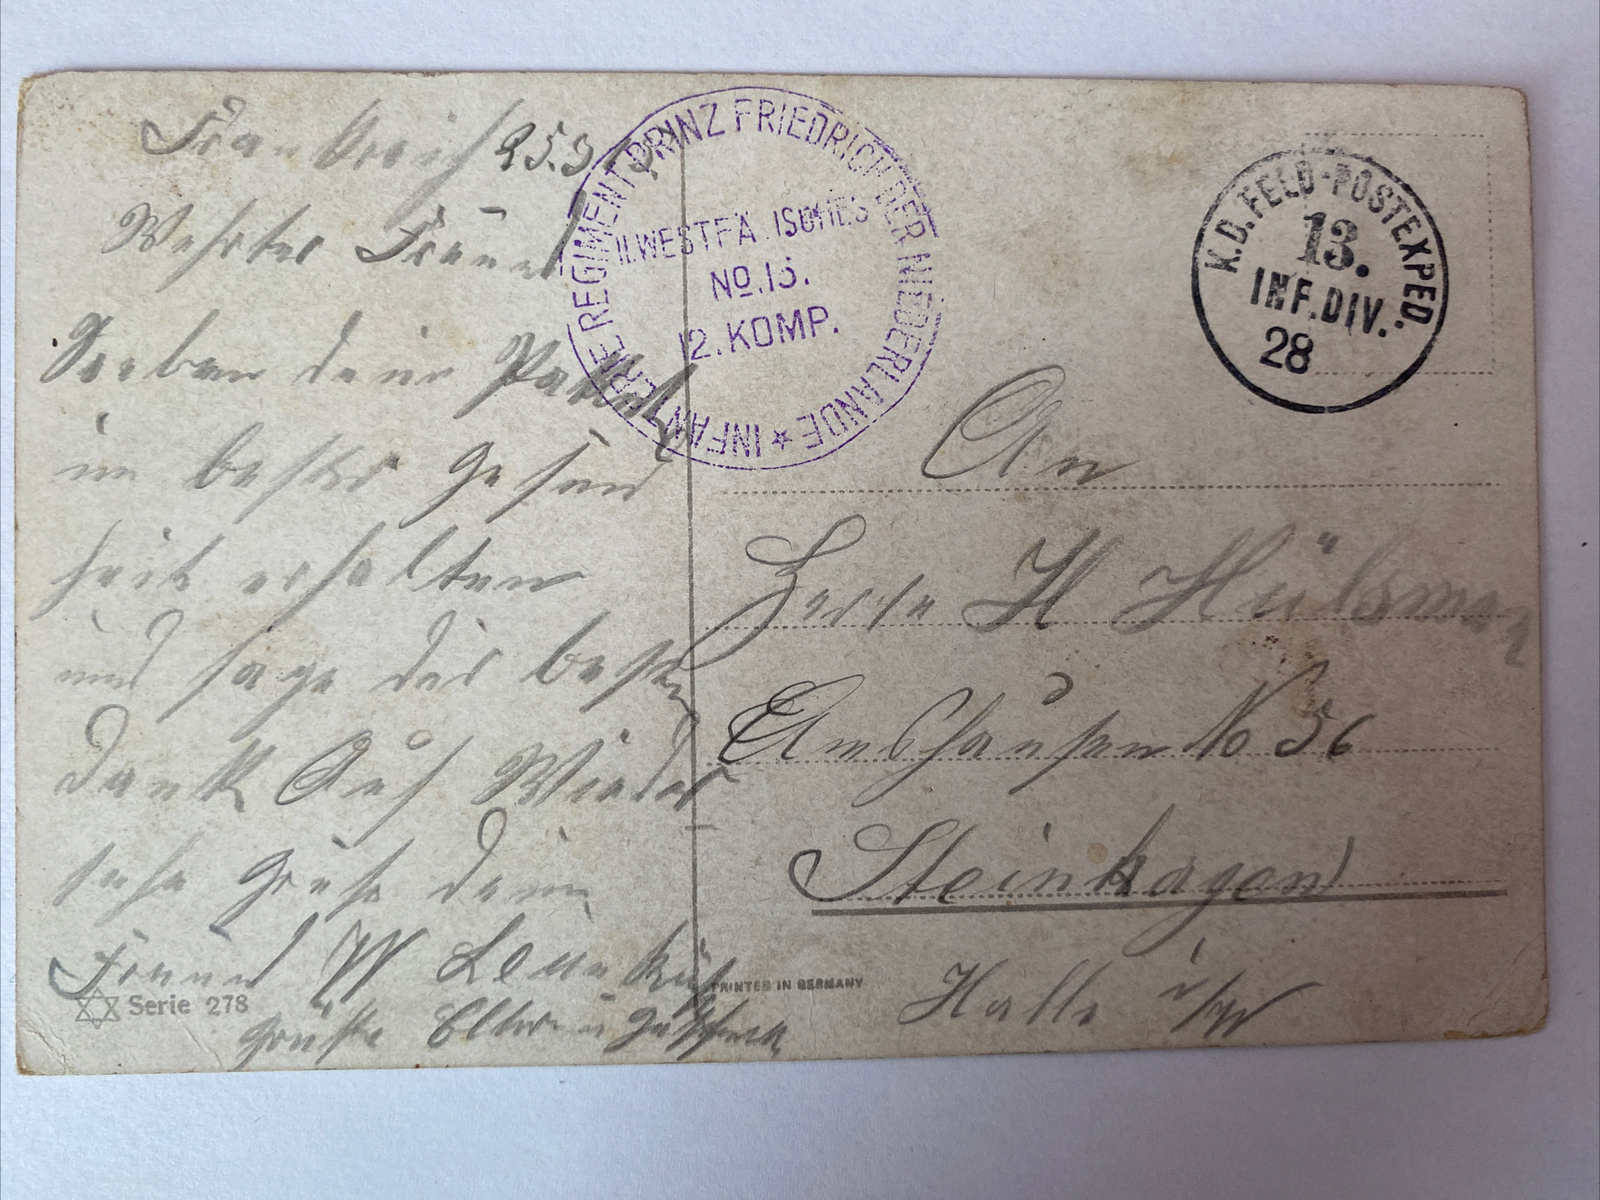 Frankreich 25.3.
Werter Freund
Soeben dein Packet
in bester Gesund
heit erhalten
und sage dir besten
Dank Auf Wieder
sehn Gruß dein
Freund W
Grüße Eltern u Geschwister
Serie 278
PRINTED IN GERMANY
INFANTERIE REGIMENT PRINZ FRIEDRICH DER NIEDERLANDE
II. WESTFÄ ISCHES
No. 15.
12. KOMP.
K.D. FELD-POSTEXPED.
13.
INF. DIV.
28
An
Herrn H Hülsmann
Amshausen No 56
Steinhagen
Halle i/W